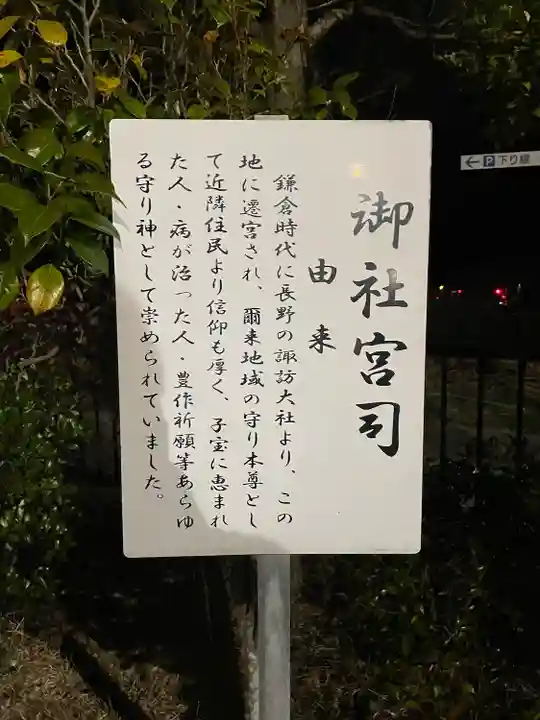 御社宮司
由来
鎌倉時代に長野の諏訪大社より、この
地に遷宮され、爾来地域の守り本尊とし
て近隣住民より信仰も厚く、子宝に恵まれ
た人・病が治った人・豊作祈願等あらゆ
る守り神として崇められていました。
←P下り線